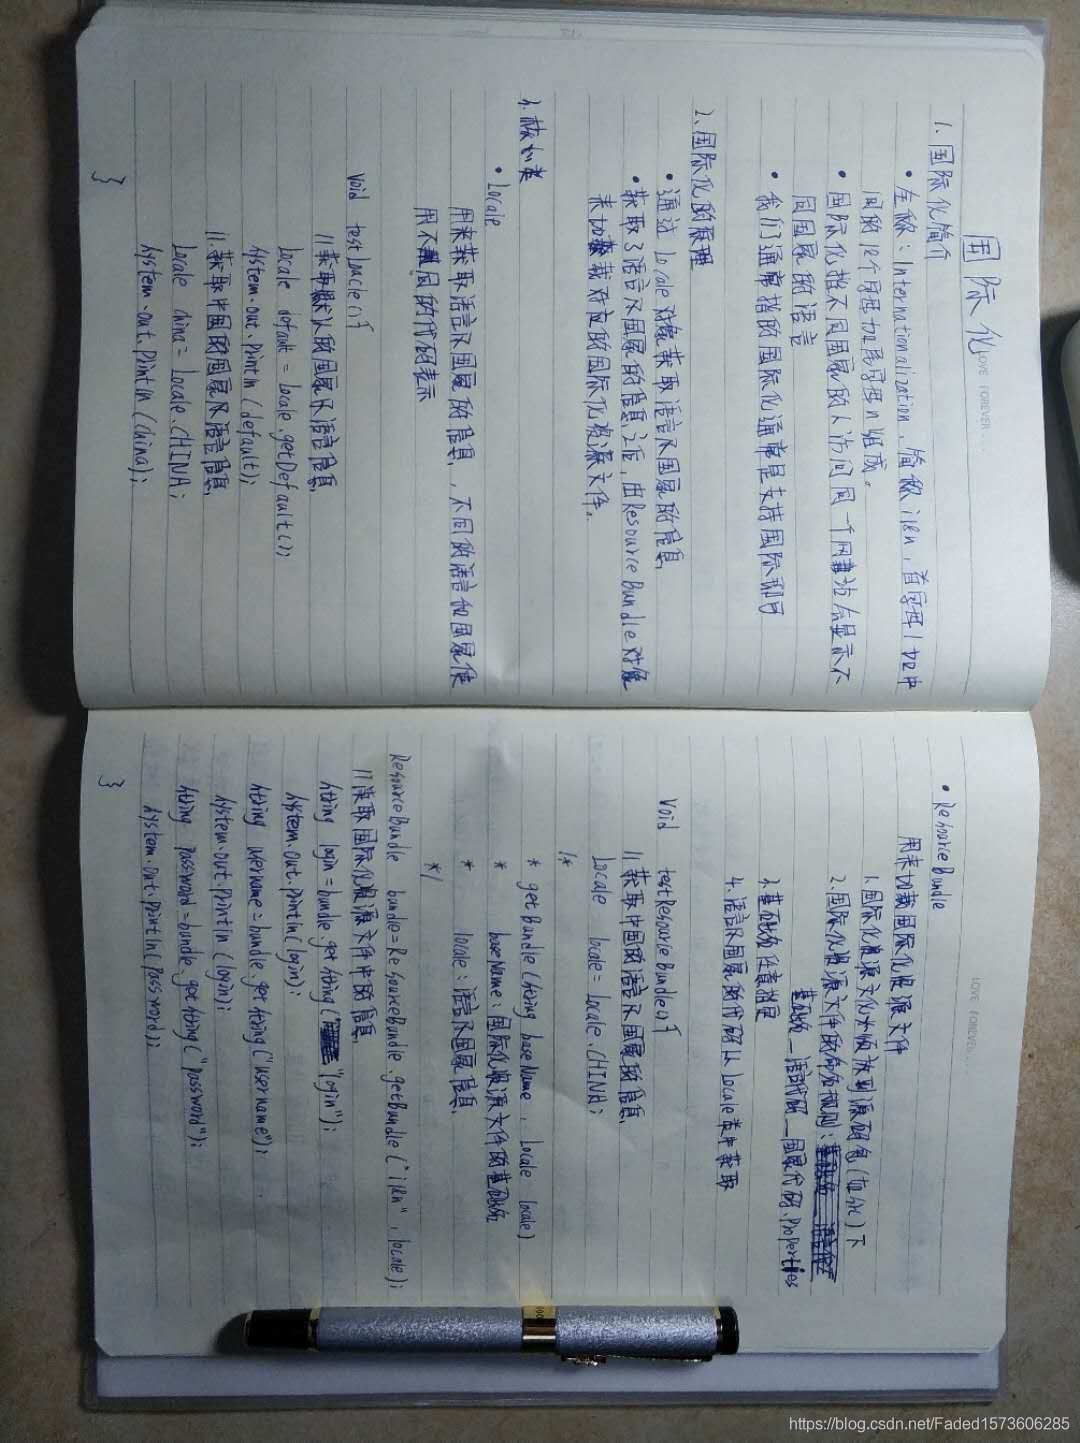 国际化
LOVE FOREVER...
1. 国际化简介
• 全称：Internationalization，简称i18n，首字母i和n中
间的18个字母加尾字母n组成。
• 国际化指不同国家的人访问同一个网站会显示不
同国家的语言
• 我们通常指的国际化通常是支持国际即可
2、国际化的原理
• 通过Locale对象获取语言及国家的信息
• 获取了语言及国家的信息之后，由ResourceBundle对象
来切载对应的国际化资源文件。
3. 核心类
• Locale
用来获取语言及国家的信息，不同的语言和国家使
用不同的代码表示
void testLocle(){
//获取默认的国家及语言信息
Locale default = Locale.getDefault();
System.out.println(default);
//获取中国的国家及语言信息
Locale china = Locale.CHINA;
System.out.println(china);
}
LOVE FOREVER...
• ResourceBundle
用来切载国际化资源文件
1. 国际化资源文化必须放到源码包(如src)下
2. 国际化资源文件的命名规则：
基础名_语言代码_国家代码.properties
3. 基础名任意指定
4. 语言及国家的代码从Locale类中获取
void testResourceBundle(){
//获取中国的语言及国家的信息
Locale locale = Locale.CHINA;
/*
* getBundle(String baseName, Locale locale)
* baseName：国际化资源文件的基础名
* locale：语言及国家信息
*/
ResourceBundle bundle=ResourceBundle.getBundle("i18n", locale);
//读取国际化资源文件中的信息
String login = bundle.getString("login");
System.out.println(login);
String username = bundle.getString("username");
System.out.println(login);
String password = bundle.getString("password");
System.out.println(password);
}
https://blog.csdn.net/Faded1573606285